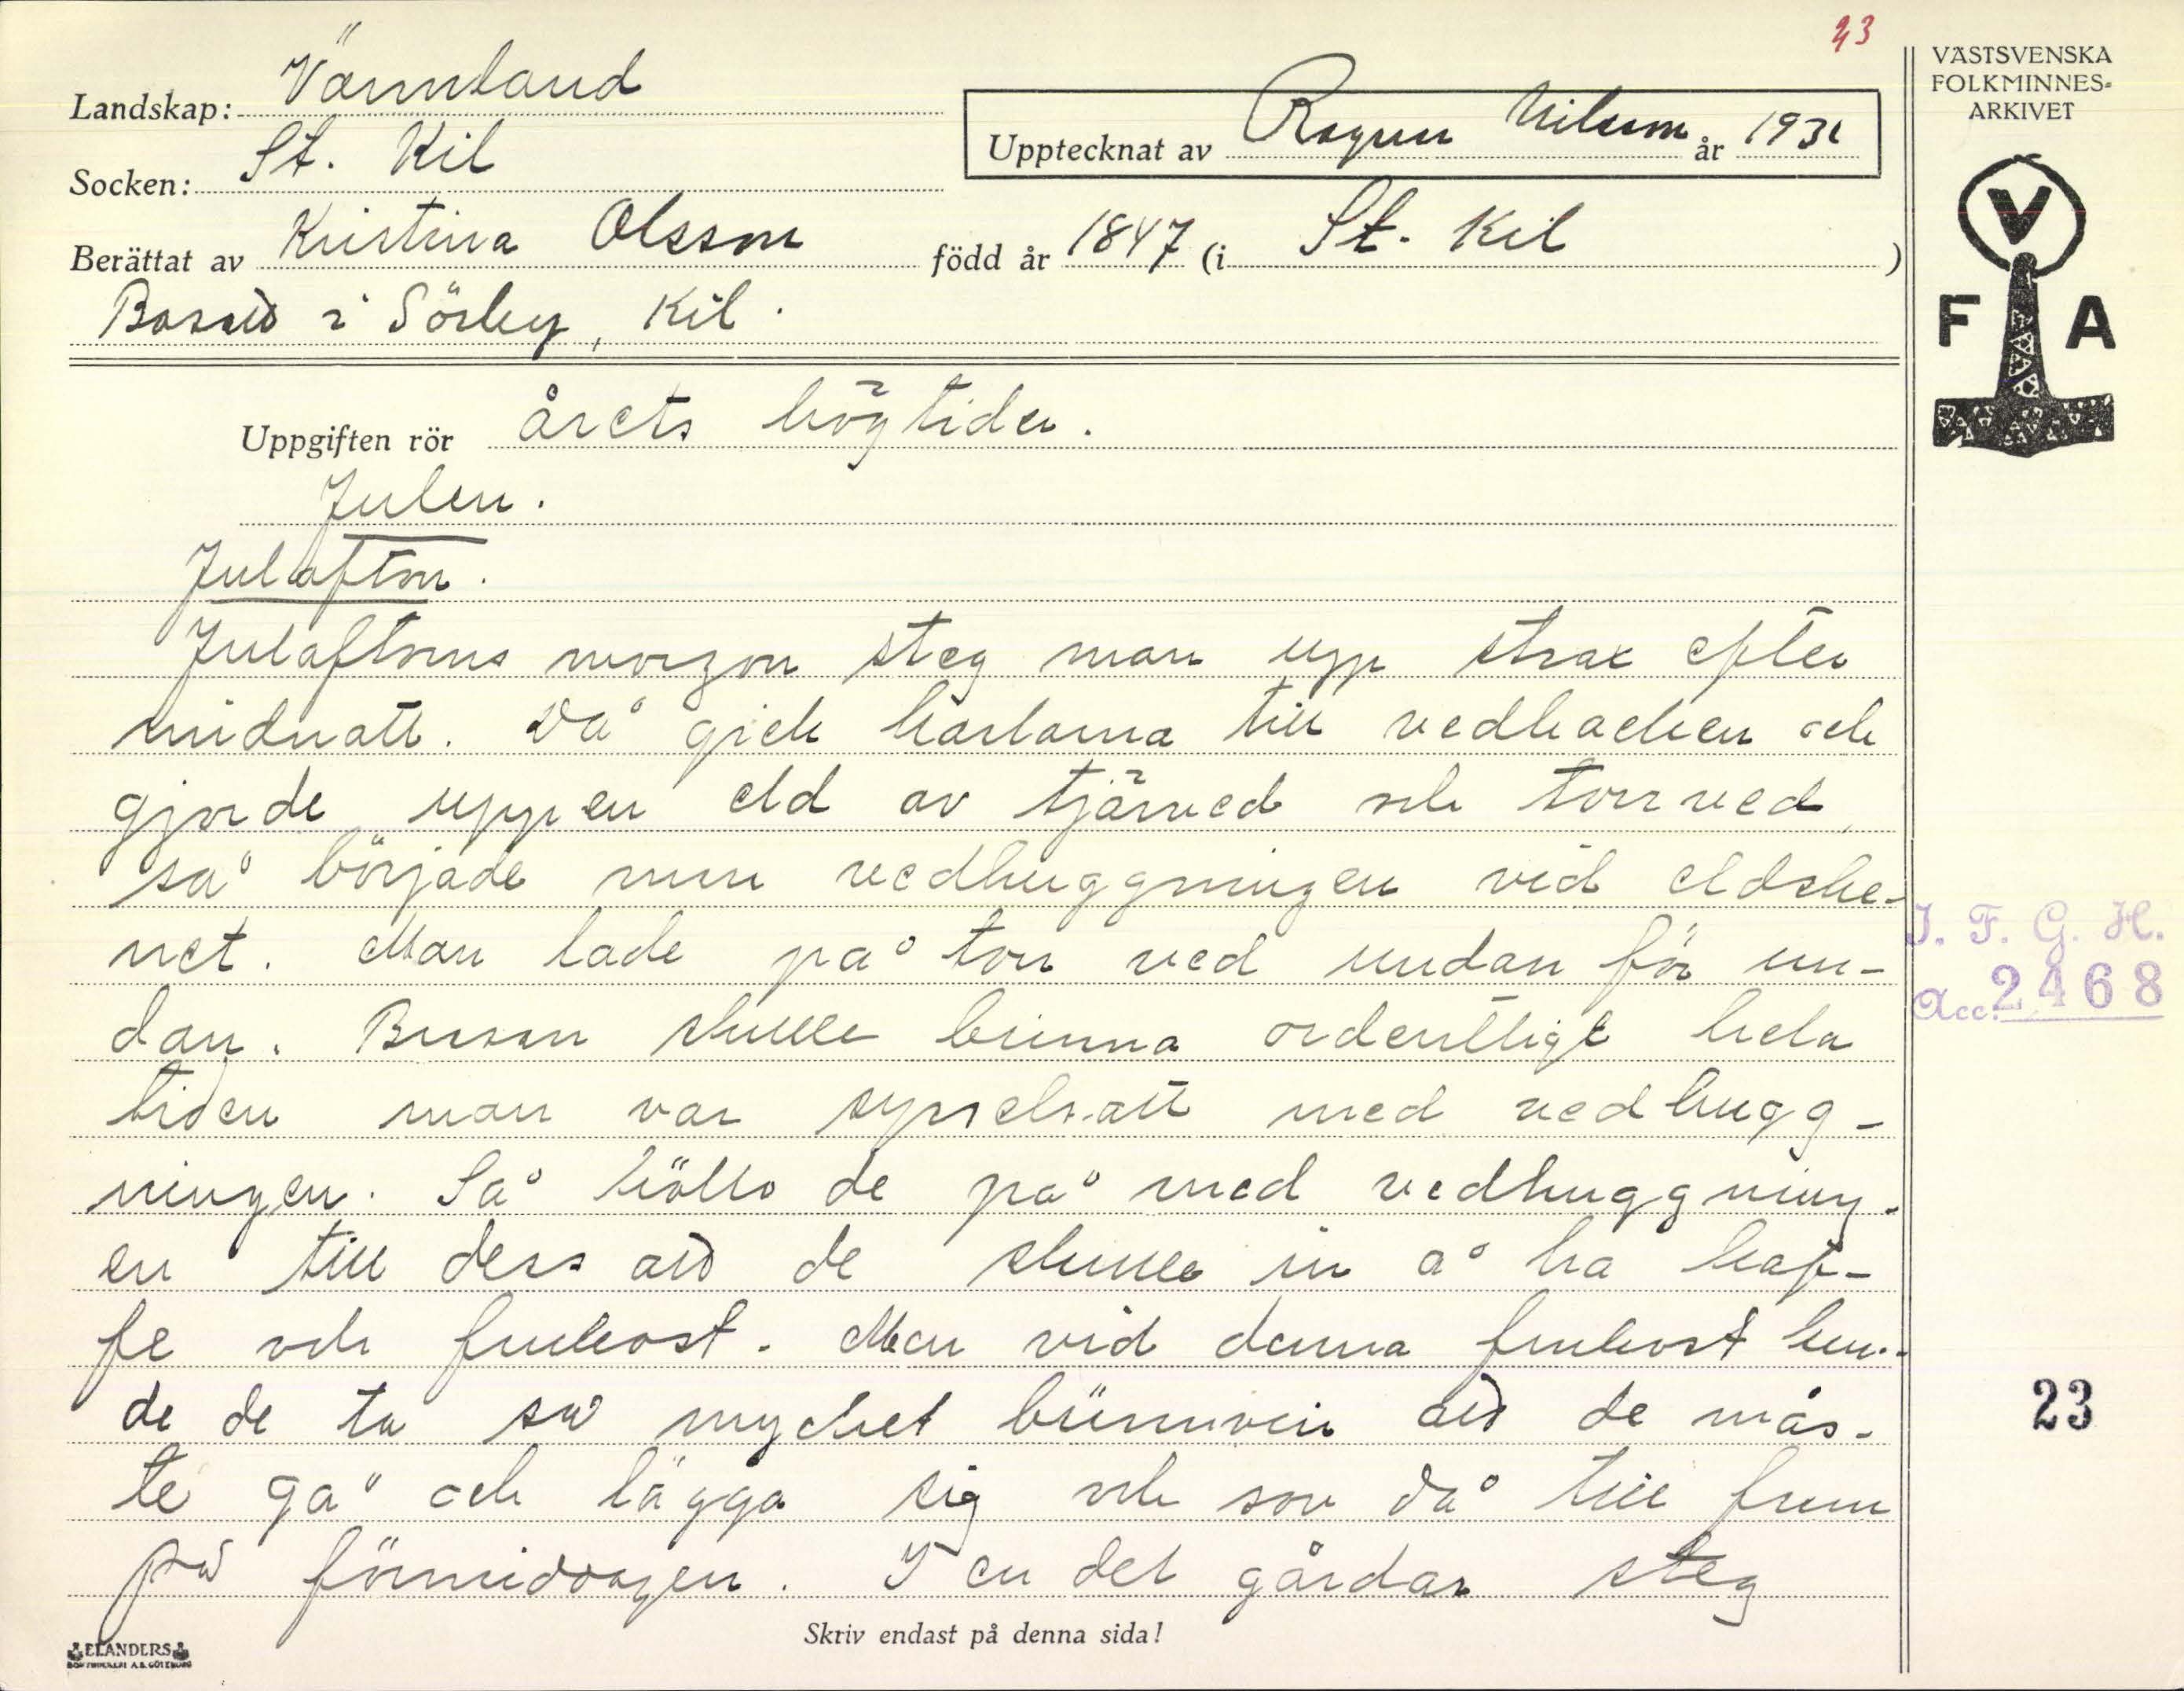 23
Landskap: Värmland
Socken: St. Kil
Upptecknat av Ragnar Nilsson år 1931
Berättat av Kristina Olsson född år 1847 (i St. Kil)
Bosatt i Sörby, Kil.
Uppgiften rör årets högtider.
Julen.
Julafton.
Julaftons morgon steg man upp strax efter
midnatt. Då gick karlarna till vedbacken och
gjorde upp en eld av tjärved och torrved,
så började nun vedhuggningen vid eldske-
net. Man lade på torr ved undan för un-
dan. Brasan skulle brinna ordentligt hela
tiden man var sysselsatt med vedhugg-
ningen. Så höllo de på med vedhuggning-
en till dess att de skulle in å ha kaf-
fe och frukost. Men vid denna frukost kun-
de de ta så mycket brännvin att de mås-
te gå och lägga sig och sov då till fram
på förmiddagen. I en del gårdar steg
Skriv endast på denna sida!
ELANDERS
BOKTRYCKERI A.B. GÖTEBORG
VÄSTSVENSKA
FOLKMINNES-
ARKIVET
V
F A
I. F. G. H.
Acc. 2468
23